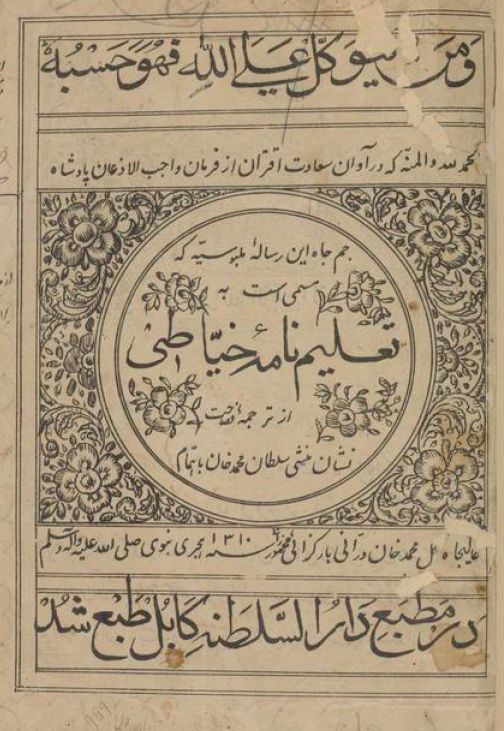 ومن یتوکل علی الله فهو حسبه
الحمد لله والمنه که در آوان سعادت اقتران از فرمان واجب الاذعان پادشاه
جم جاه این رسالهٔ ملبوسیّه که
مسمی است به
تعلیم نامهٔ خیّاطی
از ترجمه فصاحت
نشان منشی سلطان محمد خان باهتمام
عالیجاه گل محمد خان درّانی بارکزائی سنه ۱۳۱۰ هجری نبوی صلی الله علیه وآله وسلم
در مطبع دار السلطنه کابل طبع شد